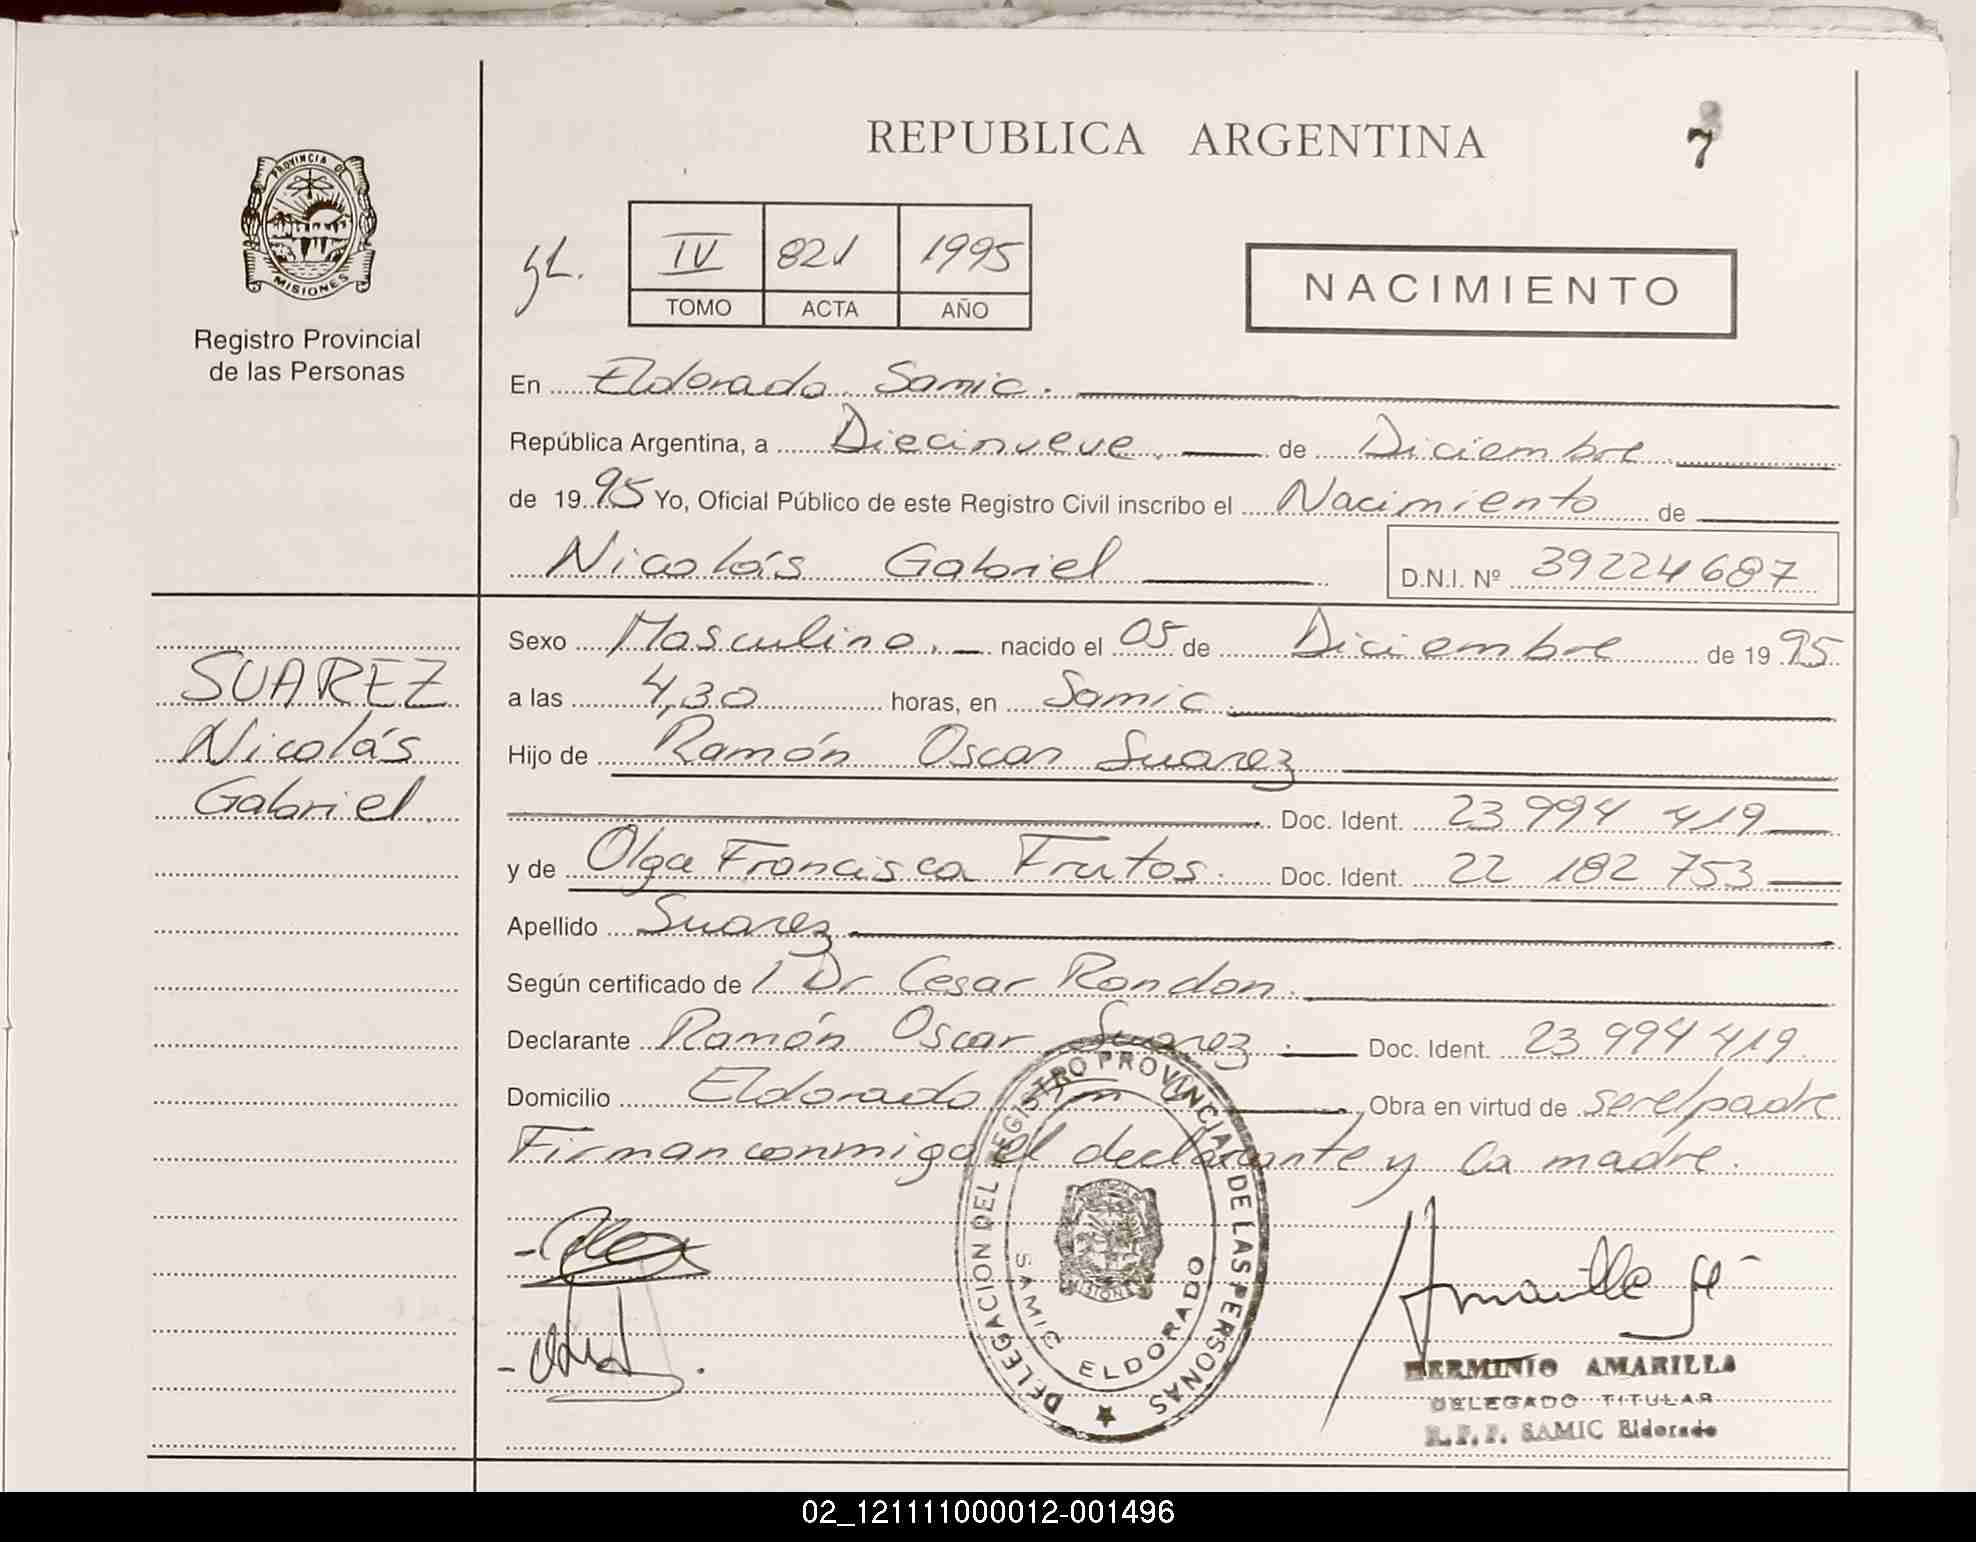 REPUBLICA ARGENTINA
7
PROVINCIA DE
MISIONES
Registro Provincial
de las Personas
IV 821 1995
TOMO ACTA AÑO
NACIMIENTO
En Eldorado Samic.
República Argentina, a Diecinueve de Diciembre
de 19 95 Yo, Oficial Público de este Registro Civil inscribo el Nacimiento de
Nicolás Gabriel D.N.I. Nº 39224687
SUAREZ
Nicolás
Gabriel.
Sexo Masculino. nacido el 05 de Diciembre de 19 95
a las 4,30 horas, en Samic.
Hijo de Ramón Oscar Suarez
Doc. Ident. 23 994 419
y de Olga Francisca Frutos. Doc. Ident. 22 182 753
Apellido Suarez
Según certificado de Dr Cesar Rondon.
Declarante Ramón Oscar Suarez. Doc. Ident. 23 994 419
Domicilio Eldorado Obra en virtud de ser el padre
Firman conmigo el declarante y la madre.
DELEGACION DEL REGISTRO PROVINCIAL DE LAS PERSONAS
SAMIC ELDORADO
HERMINIO AMARILLA
DELEGADO TITULAR
R.P.P. SAMIC Eldorado
02_121111000012-001496